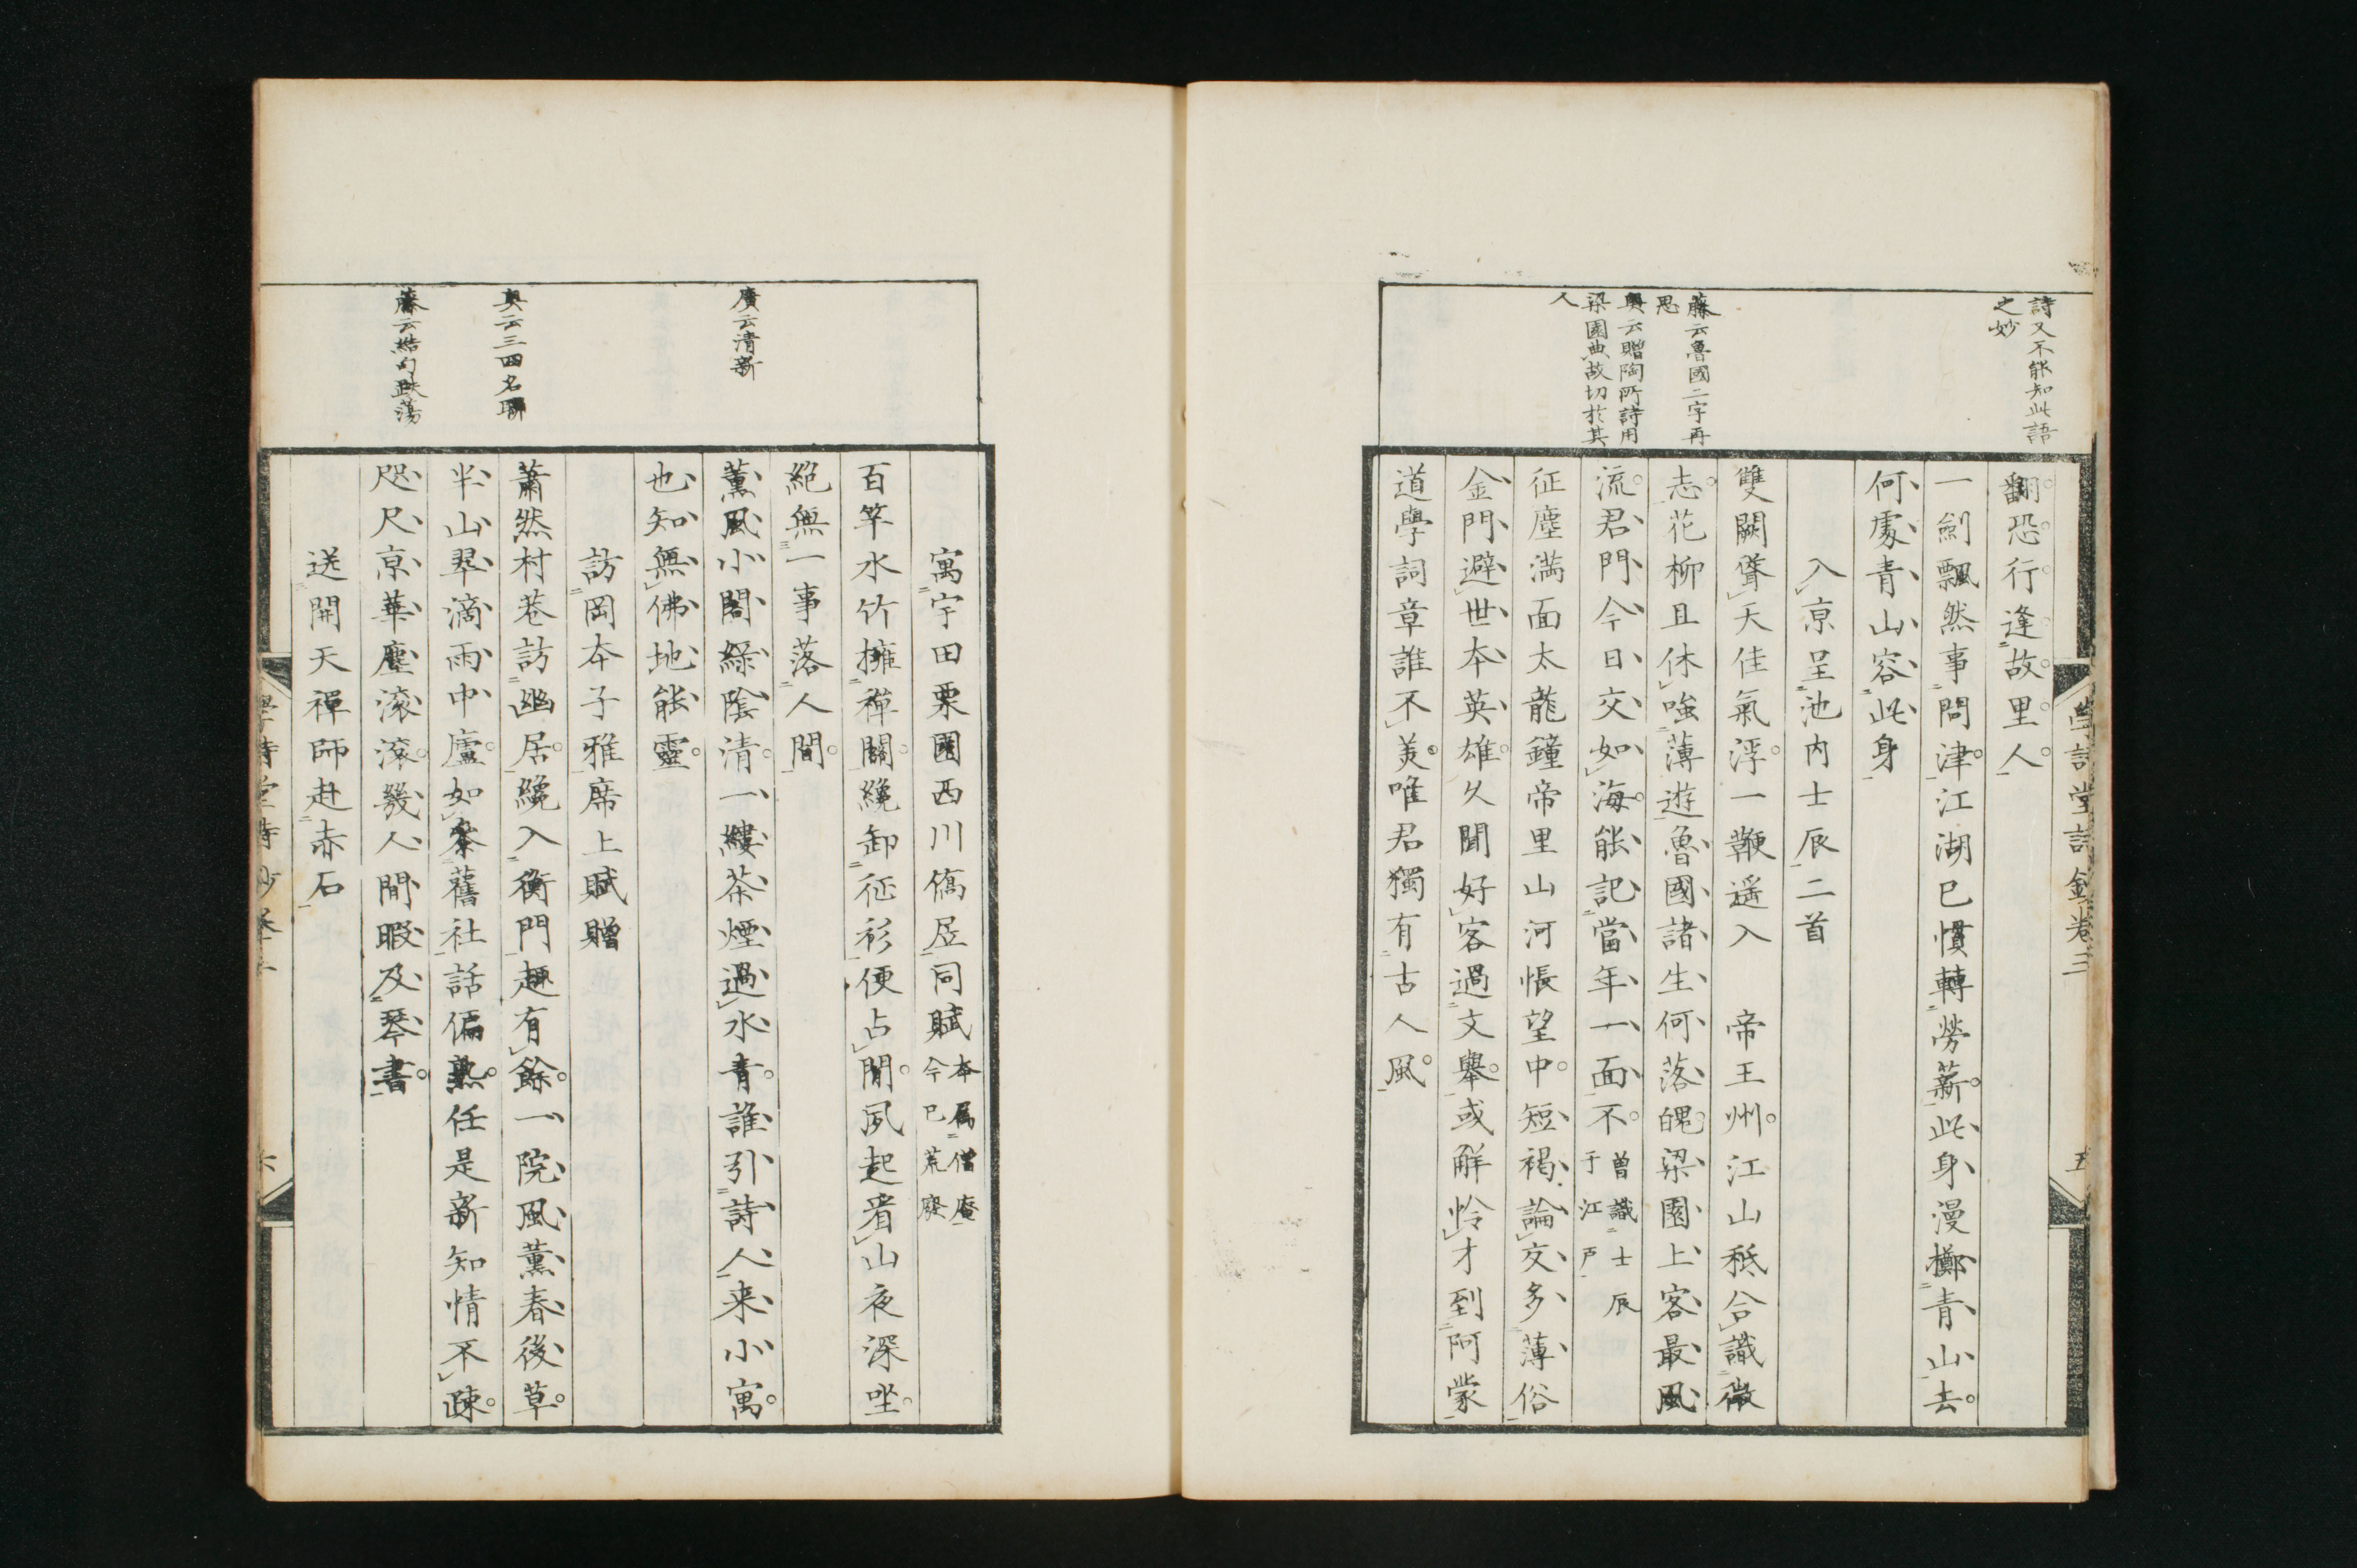 詩又不能知此語
之妙
藤云魯國二字再
思
奧云贈陶所詩用
梁園典故切於其
人
翻恐行逢故里人
一劍飄然事問津江湖已慣轉勞薪此身漫擲青山去
何處青山容此身
入京呈池内士辰二首
雙闕聳天佳氣浮一鞭遥入 帝王州江山秪合識微
志花柳且休嗤薄遊魯國諸生何落魄梁園上客最風
流君門今日交如海能記當年一面不曽識士辰
于江戸
征塵満面太龍鐘帝里山河悵望中短褐論交多薄俗
金門避世本英雄久聞好客過文舉或解怜才到阿蒙
道學詞章誰不美唯君獨有古人風
學詩堂詩鈔卷三
五
廣云清新
奧云三四名聯
藤云結句跌蕩
寓宇田栗園西川僑居同賦本属僧庵
今已荒廢
百竿水竹擁禪關纔卸征衫便占閒夙起看山夜深坐
絕無一事落人間
薰風小閣綠陰清一縷茶煙過水青誰引詩人来小寓
也知無佛地能靈
訪岡本子雅席上賦贈
蕭然村巷訪幽居纔入衡門趣有餘一院風薰春後草
半山翠滴雨中廬如參舊社話偏熟任是新知情不疎
咫尺京華塵滾滾幾人閒暇及琴書
送開天禪師赴赤石
學詩堂詩鈔卷三
六